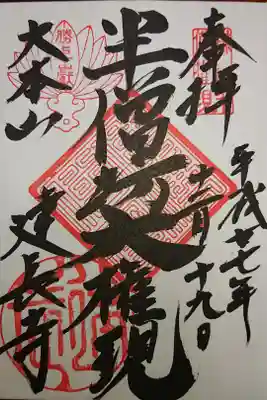 奉拝
平成廿七年
月十九日
半僧坊大権現
勝上嶽
大本山
建長寺